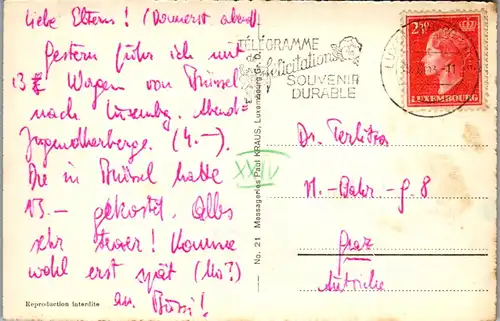 Liebe Eltern! (Donnerst. abend)
Gestern fuhr ich mit
Wagen von Brüssel
nach Luxembg. Abend
Jugendherberge. (4.—).
Die in Brüssel hatte
13.— gekostet. Alles
sehr teuer! Komme
wohl erst spät (Mo?)
an. Bussi!
Reproduction interdite
No. 21 Messageries Paul KRAUS, Luxembourg-Gr. D.
XXIV
TÉLÉGRAMME
de félicitations
SOUVENIR
DURABLE
2F50
LUXEMBOURG
Dr. Terlitza
H.-Bahr-G. 8
Graz
Autriche